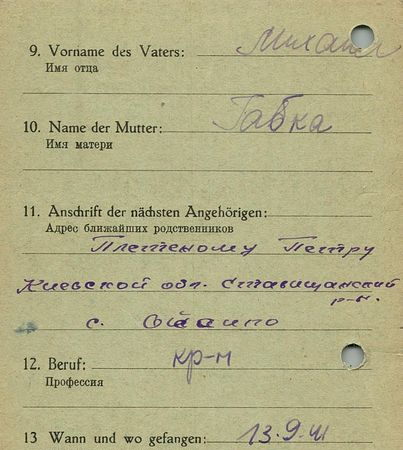 9. Vorname des Vaters: Михаил
Имя отца
10. Name der Mutter: Габка
Имя матери
11. Anschrift der nächsten Angehörigen:
Адрес ближайших родственников
Петру
Киевской обл. Ставищанский
р-н.
с.
12. Beruf: кр-н
Профессия
13 Wann und wo gefangen: 13.9.41